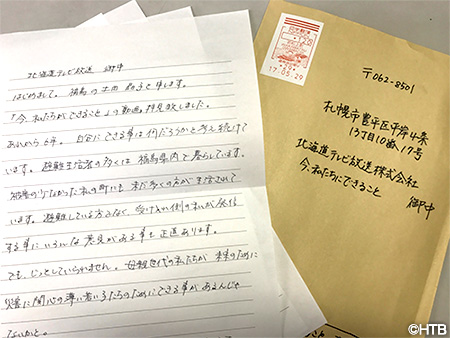 北海道テレビ放送 御中
はじめまして。福島の と申します。
「今、私たちができること」の動画 拝見致しました。
あれから6年。自分にできる事は何だろうかと考え続けて
います。避難生活者の多くは福島県内で暮らしています。
被害の少なかった私の町にも、まだ多くの方が生活されて
います。避難している方でなく 受け入れ側の私が発信
する事に いろんな意見がある事も正直あります。
でも、じっとしていられません。母親世代の私たちが 未来のために
災害に関心の薄い若い子たちのためにできる事があるんじゃ
ないかと。
日本郵便
17.05.29
〒062-8501
札幌市豊平区平岸4条
13丁目10番17号
北海道テレビ放送株式会社
今、私たちにできること 御中
©HTB